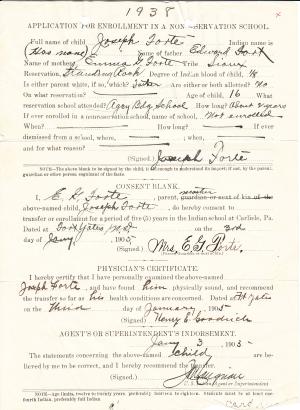 1938
APPLICATION FOR ENROLLMENT IN A NONRESERVATION SCHOOL.
(Full name of child) Joseph Forte Indian name is
(Has none) Name of father Edward Forte
Emma G Forte Tribe Sioux
Reservation, Standing Rock Degree of Indian blood of child, 1/8
Is either parent white, if so, which? Father Are either or both allotted? No
On what reservation? Age of child, 16 What
reservation school attended? Agcy Bdg School How long? About 9 years
If ever enrolled in a nonreservation school, name of school, Not enrolled
When? How long? If ever
dismissed from a school, where, when,
and for what reason?
(Signed.) Joseph Forte
NOTE.—The above blank to be signed by the child, if old enough to understand its import; if not, by the parent,
guardian or other person cognizant of the facts.
CONSENT BLANK.
I, E. G. Forte, parent, guardian or next of kin of the
above-named child, Joseph Forte, do hereby consent to
transfer or enrollment for a period of five (5) years in the Indian school at Carlisle, Pa.
Dated at Fort Yates N.D. on the 3rd
day of Jany, 1905
Mrs. E. G. Forte.
PHYSICIAN'S CERTIFICATE.
I hereby certify that I have personally examined the above-named
Joseph Forte, and have found him physically sound, and recommend
the transfer so far as his health conditions are concerned. Dated at Ft Yates
on the third day of January 1905
(Signed.) Henry E. Goodrich
AGENT'S OR SUPERINTENDENT'S INDORSEMENT.
Jany 3 1905
The statements concerning the above-named child are be-
lieved by me to be correct, and I hereby recommend the transfer.
(Signed.)
U. S. Indian Agent or Superintendent
NOTE—Age limits, twelve to twenty years, preferably thirteen to eighteen. Students must be at least one-
fourth Indian, preferably full Indian.
card